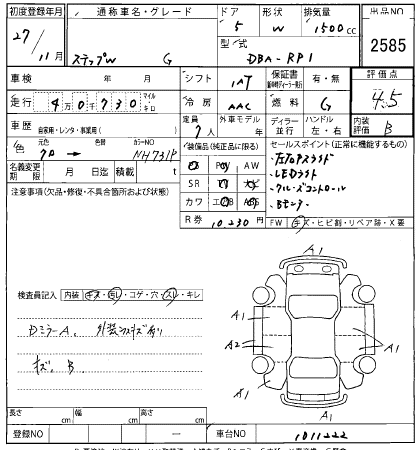 初度登録年月
27/11月
通称車名・グレード
ステップW G
ドア
5
形状
W
排気量
1500cc
型式
DBA-RP1
出品NO
2585
車検 年 月
シフト
IAT
保証書
有・無
評価点
4.5
走行 4万0千730 マイル・キロ
冷房
AAC
燃料
G
車歴 自家用・レンタ・事業用( )
定員
7人
外車モデル
年
ディーラー・並行
ハンドル
左・右
内装評価
B
色
元色
クロ→
色替
カラーNO
NH731P
装備品(純正品に限る)
PS PW AW
SR
カワ エアB ABS
セールスポイント(正常に機能するもの)
・左右Pスライド
・LEDライト
・クルーズコントロール
・Bモニター
名義変更期限
月 日迄
積載
t
R券
10,230円
FW キズ・ヒビ割・リペア跡・X要
注意事項(欠品・修復・不具合箇所および状態)
検査員記入 内装 キズ・汚レ・コゲ・穴・スレ・キレ
DミラーA、外装小キズ有り
キズ、B
A1
A1
A1
A2
A1
A1
A1
長さ cm
幅 cm
高さ cm
登録NO
車台NO
1011222